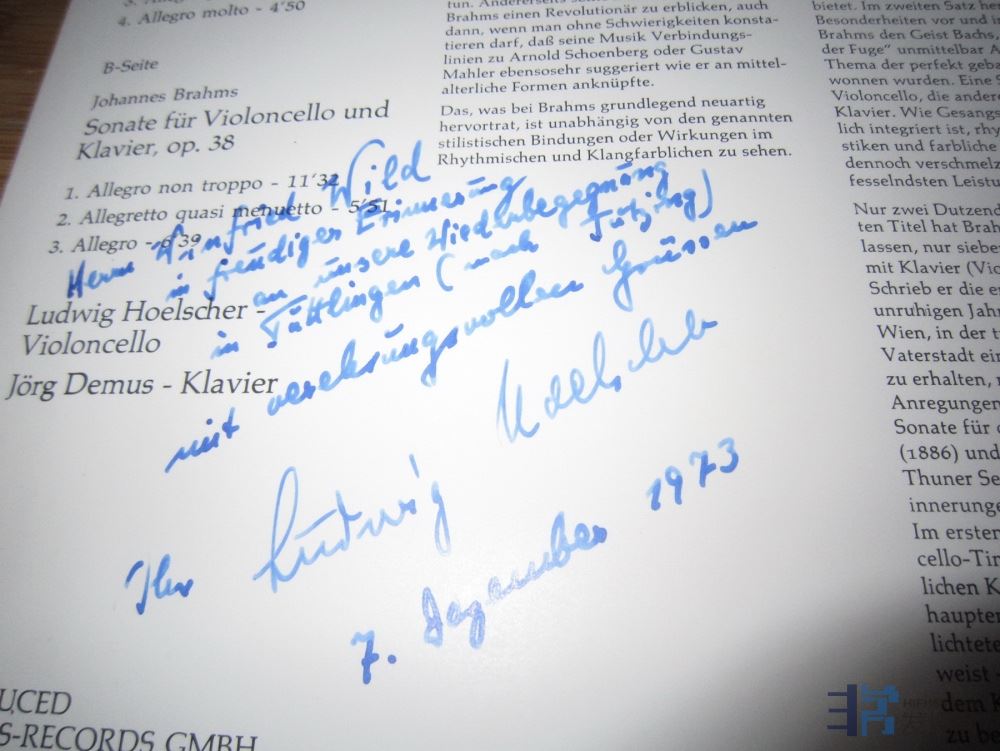 4. Allegro molto - 4'50
B-Seite
Johannes Brahms
Sonate für Violoncello und
Klavier, op. 38
1. Allegro non troppo - 11'32
2. Allegretto quasi menuetto - 5'51
3. Allegro - 6'39
Ludwig Hoelscher -
Violoncello
Jörg Demus - Klavier
UCED
S-RECORDS GMBH
Herrn Winfried Wild
in freudiger Erinnerung
an unsere Wiederbegegnung
in Tuttlingen (nach Tutzing)
mit verehrungsvollen Grüssen
Ihr Ludwig Hoelscher
7. Dezember 1973
tun. Andererseits
Brahms einen Revolutionär zu erblicken, auch
dann, wenn man ohne Schwierigkeiten konsta-
tieren darf, daß seine Musik Verbindungs-
linien zu Arnold Schoenberg oder Gustav
Mahler ebensosehr suggeriert wie er an mittel-
alterliche Formen anknüpfte.
Das, was bei Brahms grundlegend neuartig
hervortrat, ist unabhängig von den genannten
stilistischen Bindungen oder Wirkungen im
Rhythmischen und Klangfarblichen zu sehen.
bietet. Im zweiten Satz
Besonderheiten vor und
Brahms den Geist Bachs,
der Fuge" unmittelbar
Thema der perfekt
wonnen wurden. Eine
Violoncello, die andere
Klavier. Wie Gesangs
lich integriert ist,
stiken und farbliche
dennoch verschmelz
fesselndsten Leistu
Nur zwei Dutzend
ten Titel hat Brah
lassen, nur siebe
mit Klavier (Vio
Schrieb er die e
unruhigen Jahr
Wien, in der
Vaterstadt ein
zu erhalten,
Anregungen
Sonate für
(1886) und
Thuner Se
innerunge
Im ersten
cello-Tin
lichen K
haupten
lichtete
weist
dem
zu be